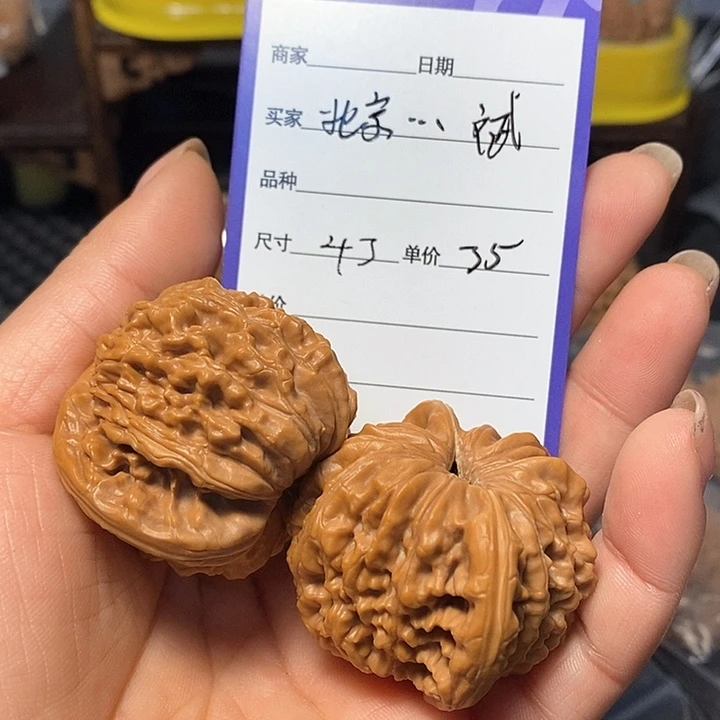 商家 日期
买家 北京 … 斌
品种
尺寸 43 单价 35
价